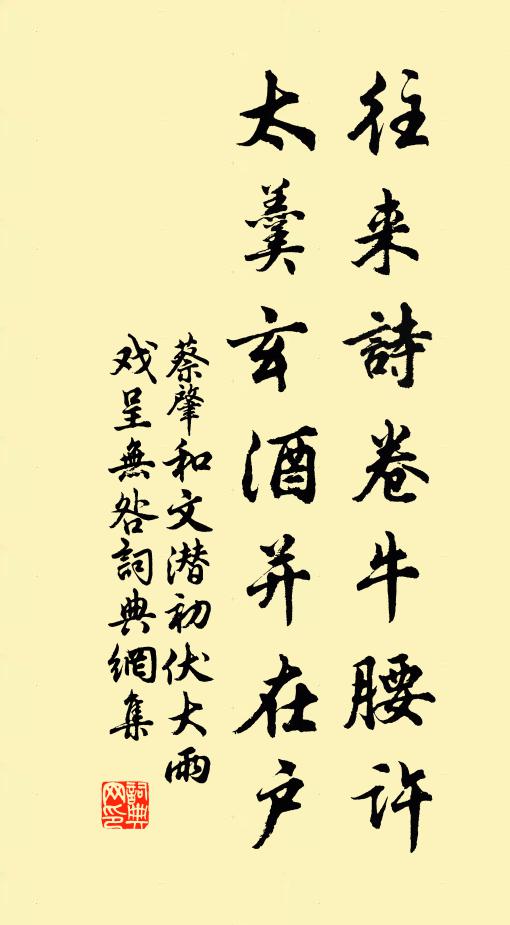 往来詩卷牛腰许
太羹玄酒并在户
蔡肇和文潜初伏大雨
戏呈無咎詞典網集
詞典
网印